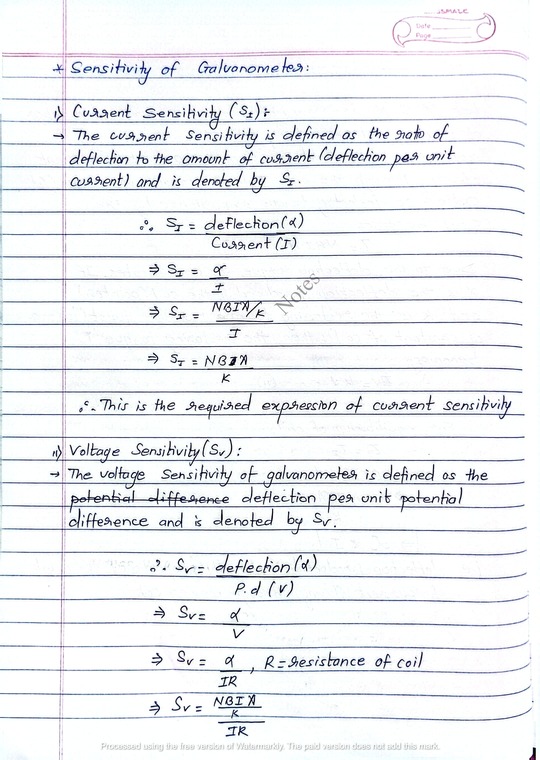 SMALE
Date
Page
* Sensitivity of Galvanometer:
i) Current Sensitivity (S_I):-
→ The current sensitivity is defined as the ratio of
deflection to the amount of current (deflection per unit
current) and is denoted by S_I.
∴ S_I = deflection(α)
Current (I)
⇒ S_I = α
I
⇒ S_I = NBIA/K
I
⇒ S_I = NBA
K
Notes
∴ This is the required expression of current sensitivity
ii) Voltage Sensitivity (S_V):
→ The voltage sensitivity of galvanometer is defined as the
potential difference deflection per unit potential
difference and is denoted by S_V.
∴ S_V = deflection (α)
P.d (V)
⇒ S_V = α
V
⇒ S_V = α , R = resistance of coil
IR
⇒ S_V = NBIA
K
IR
Processed using the free version of Watermarkly. The paid version does not add this mark.